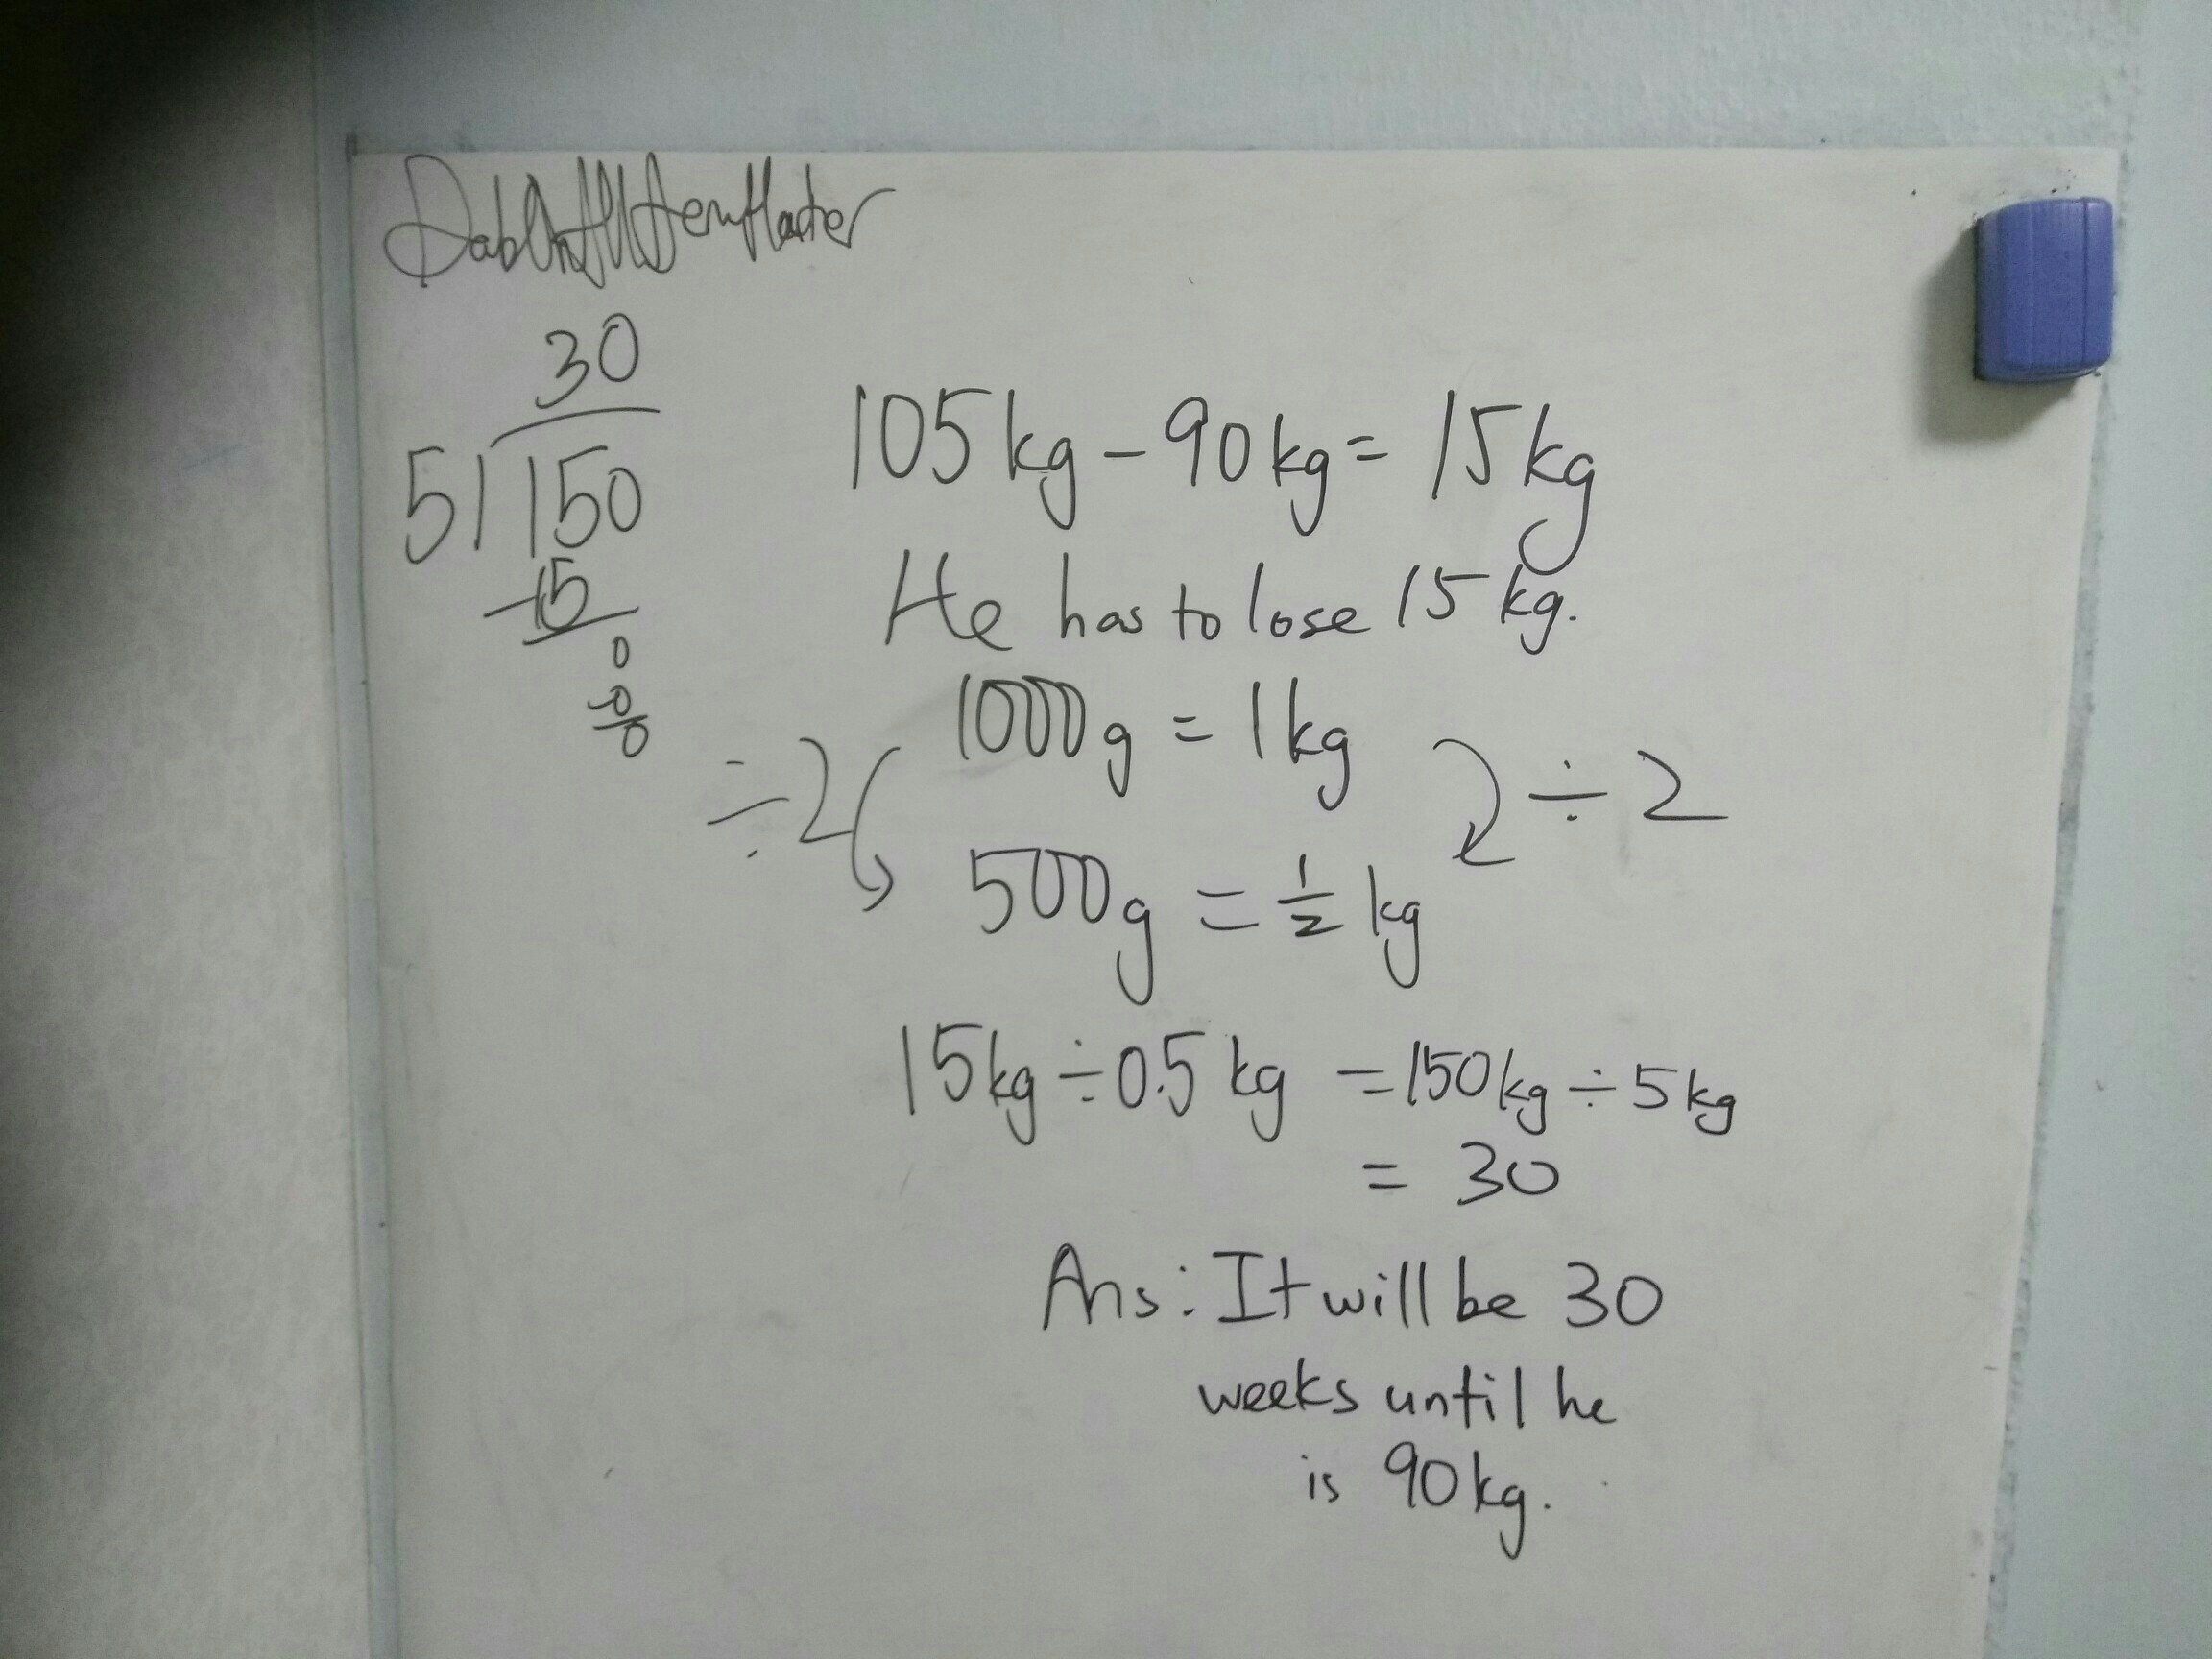 30
5 150
-15
0
-0
0
105 kg - 90 kg = 15 kg
He has to lose 15 kg.
1000 g = 1 kg
÷2 ÷ 2
500 g = 1/2 kg
15 kg ÷ 0.5 kg = 150 kg ÷ 5 kg
= 30
Ans: It will be 30
weeks until he
is 90 kg.